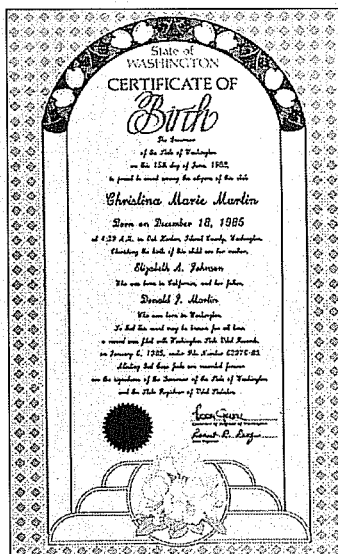 State of
WASHINGTON
CERTIFICATE OF
Birth
The Governor
of the State of Washington
on this 15th day of June, 1989,
is proud to count among the citizens of this state
Christina Marie Martin
Born on December 18, 1985
at 4:23 A.M. in Oak Harbor, Island County, Washington.
the birth of this child are her mother,
Elizabeth A. Johnson
Who was born in California, and her father,
Donald J. Martin
Who was born in Washington.
So that this event may be known for all time
a record was filed with Washington State Vital Records,
on January 6, 1985, under File Number
Attesting that these facts are recorded forever
are the signatures of the Governor of the State of Washington
and the State Registrar of Vital Statistics.